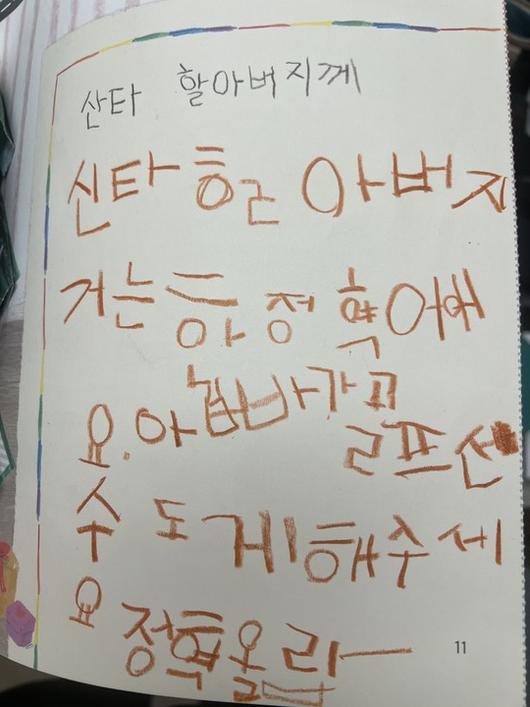 산타 할아버지께
산타 할 아버지
저는 하정혁이에
요. 아빠가 골프선
수 되게 해주세
요 정혁올림
11